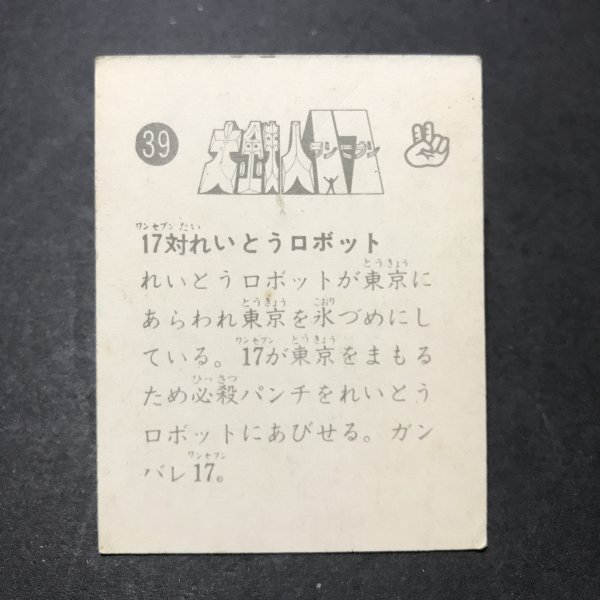 39
大鉄人17
ワンセブン
17対れいとうロボット
れいとうロボットが東京に
あらわれ東京を氷づめにし
ている。17が東京をまもる
ため必殺パンチをれいとう
ロボットにあびせる。ガン
バレ17。